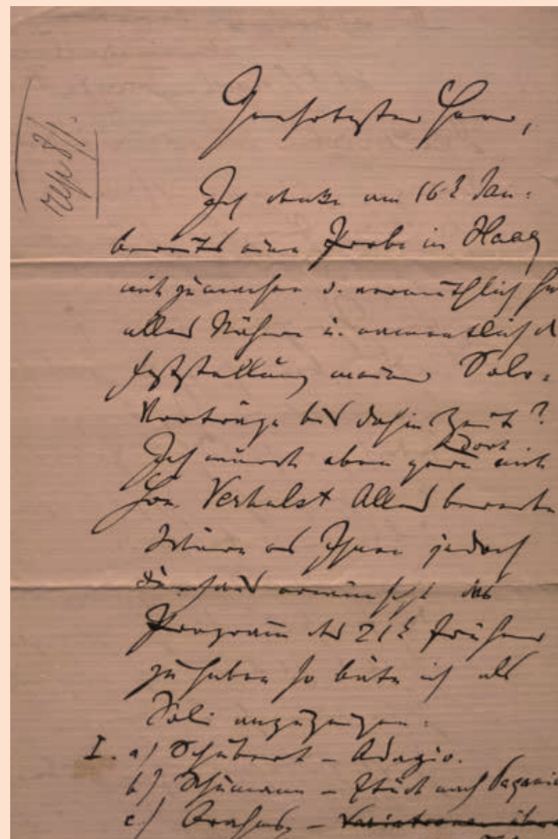 rep 8/1.
Geehrtester Herr,
Ich denke am 16t Jan:
bereits eine Probe in Haag
mitzumachen u. vermuthlich ha
alles Nähere u. namentlich d
Feststellung meiner Solo-
Vorträge bis dahin Zeit?
Ich würde eben gern dort mit
Hrn. Verhulst Alles berathe
Wäre es Ihnen jedoch
durchaus erwünscht das
Program des 21t früher
zu haben so bitte ich als
Soli anzuzeigen:
I. a) Schubert – Adagio.
b) Schumann – Stück nach Paganin
c) Brahms – Variationen über